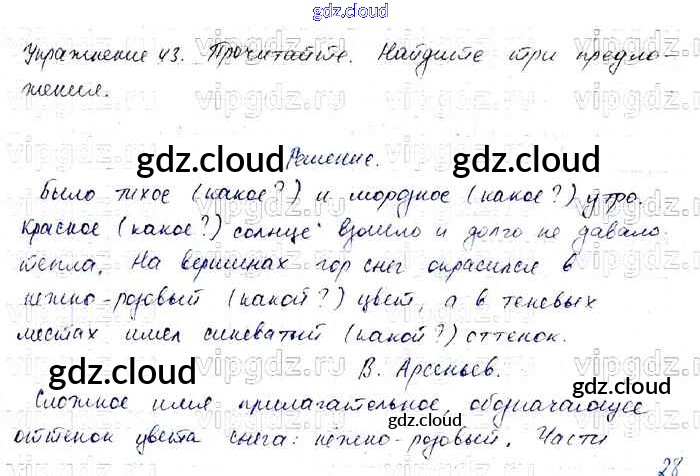 gdz.cloud
Упражнение 43. Прочитайте. Найдите три предло-
жения.
Решение.
Было тихое (какое?) и морозное (какое?) утро.
Красное (какое?) солнце взошло и долго не давало
тепла. На вершинах гор снег окрасился в
нежно-розовый (какой?) цвет, а в теневых
местах имел синеватый (какой?) оттенок.
В. Арсеньев.
Сложное имя прилагательное, обозначающее
оттенок цвета снега: нежно-розовый. Части
28